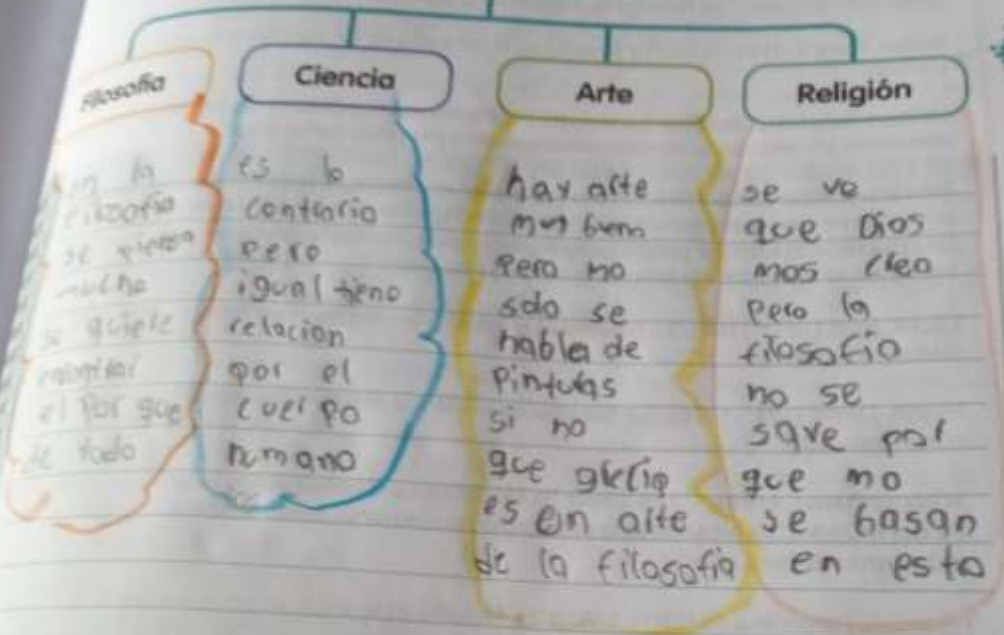 Filosofía
en la
filosofia
se piensa
mucho
se quiere
encontrar
el por que
de todo
Ciencia
es lo
contrario
pero
igual tiene
relacion
por el
cuerpo
humano
Arte
hay arte
muy buem
pero no
solo se
habla de
pinturas
si no
que
es en arte
de la filosofia
Religión
se ve
que Dios
mos creo
pero la
filosofio
no se
save por
que mo
se basan
en esto